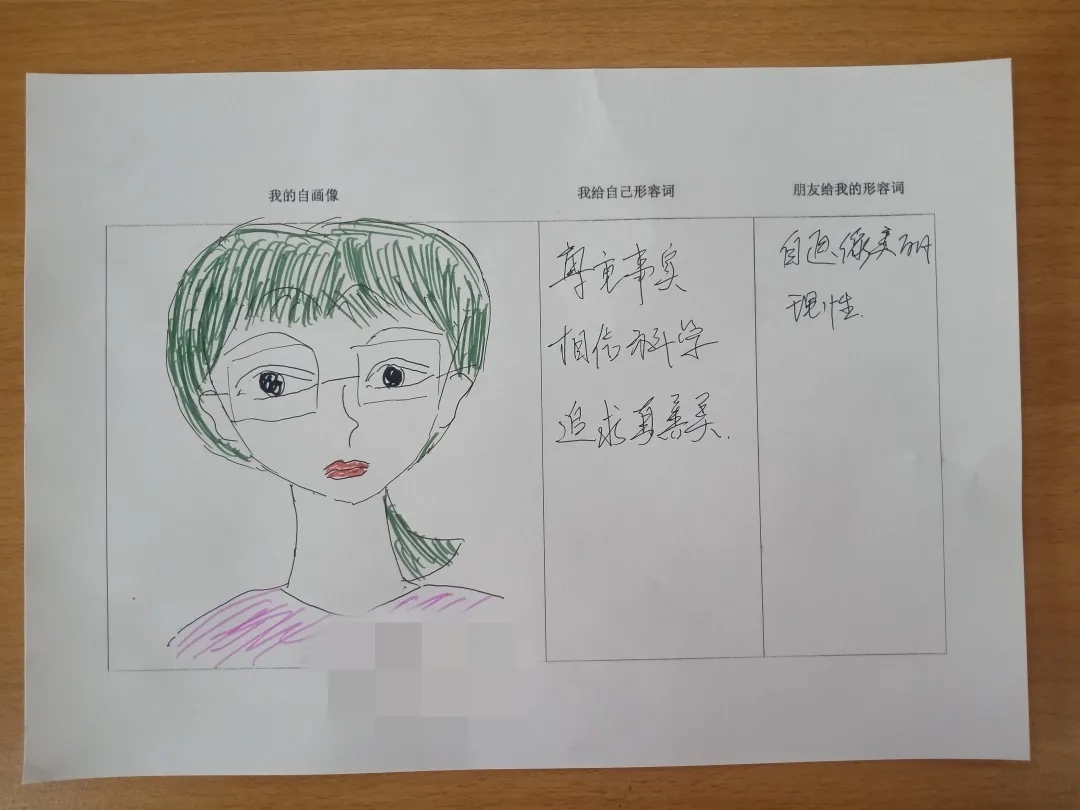 我的自画像
我给自己形容词
朋友给我的形容词
尊重事实
相信科学
追求真善美.
自画像美丽
理性.